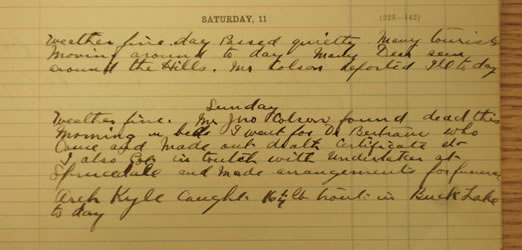 SATURDAY, 11 (223—142)
Weather fine. day Passed quietly Many tourists
Moving around to day Many Deer seen
around the Hills. Mr Colson reported Ill to day
Sunday
Weather fine. Mr Jno Colson found dead this
Morning in bed I went for Dr Bertram who
Came and Made out death Certificate
I also Got in touch with undertaker at
Sprucedale and Made arrangements for funeral
Arch Kyle Caught lb trout in Buck Lake
to day